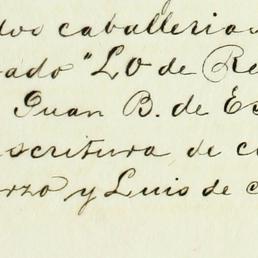 dos caballerias
ado "LO de Re
Juan B. de Es
scritura de c
rzo y Luis de